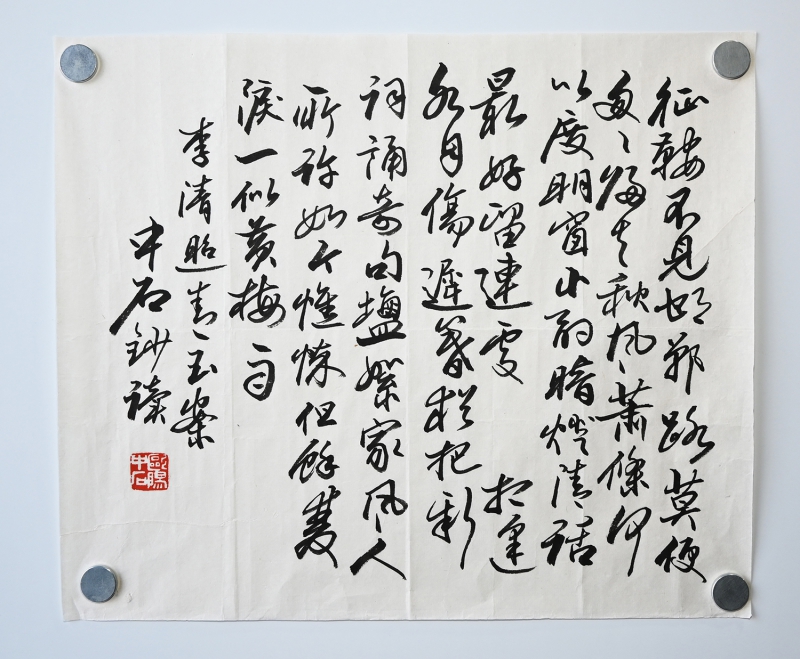 征鞍不見邯鄲路莫便
匆匆歸去秋风蕭條何
以度明窗小酌暗燈清話
最好留連處 相逢
各自傷遲暮猶把新
詞誦奇句鹽絮家风人
所許如今憔悴但餘雙
淚一似黄梅雨
李清照青玉案
中石鈔讀
歐陽中石